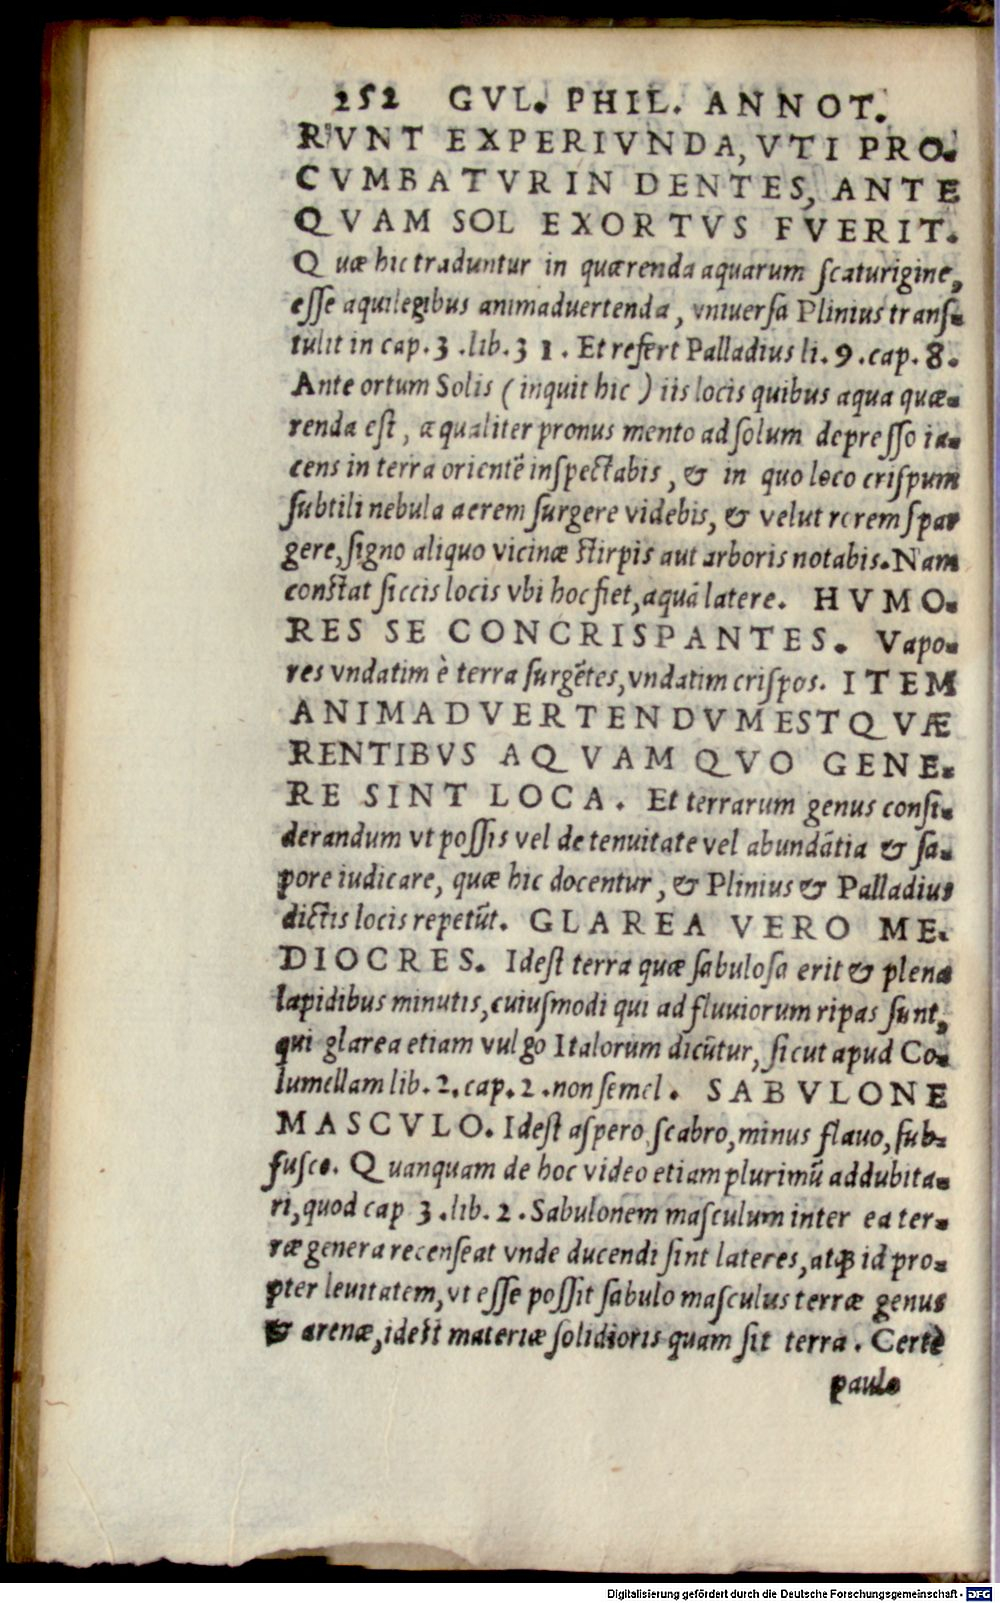 252 GVL. PHIL. ANNOT.
RVNT EXPERIVNDA, VTI PRO-
CVMBATVR IN DENTES, ANTE
QVAM SOL EXORTVS FVERIT.
Quæ hic traduntur in quærenda aquarum ſcaturigine,
eſſe aquilegibus animaduertenda, vniuerſa Plinius tranſ-
tulit in cap. 3. lib. 31. Et refert Palladius li. 9. cap. 8.
Ante ortum Solis (inquit hic) iis locis quibus aqua quæ-
renda eſt, æqualiter pronus mento ad ſolum depreſſo ia-
cens in terra orientē inſpectabis, & in quo loco criſpum
ſubtili nebula aerem ſurgere videbis, & velut rorem ſpar
gere, ſigno aliquo vicinæ ſtirpis aut arboris notabis. Nam
conſtat ſiccis locis vbi hoc fiet, aquā latere. HVMO-
RES SE CONCRISPANTES. Vapo-
res vndatim è terra ſurgētes, vndatim criſpos. ITEM
ANIMADVERTENDVM EST QVÆ
RENTIBVS AQVAM QVO GENE-
RE SINT LOCA. Et terrarum genus conſi-
derandum vt poſſis vel de tenuitate vel abundātia & ſa-
pore iudicare, quæ hic docentur, & Plinius & Palladius
dictis locis repetūt. GLAREA VERO ME-
DIOCRES. Ideſt terra quæ ſabuloſa erit & plena
lapidibus minutis, cuiuſmodi qui ad fluuiorum ripas ſunt,
qui glarea etiam vulgo Italorum dicūtur, ſicut apud Co-
lumellam lib. 2. cap. 2. non ſemel. SABVLONE
MASCVLO. Ideſt aſpero ſcabro, minus flauo, ſub-
fuſco. Quanquam de hoc video etiam plurimū addubita-
ri, quod cap 3. lib. 2. Sabulonem maſculum inter ea ter-
ræ genera recenſeat vnde ducendi ſint lateres, atqꝫ id pro-
pter leuitatem, vt eſſe poſſit ſabulo maſculus terræ genus
& arenæ, ideſt materiæ ſolidioris quam ſit terra. Certè
paulo
Digitalisierung gefördert durch die Deutsche Forschungsgemeinschaft - DFG